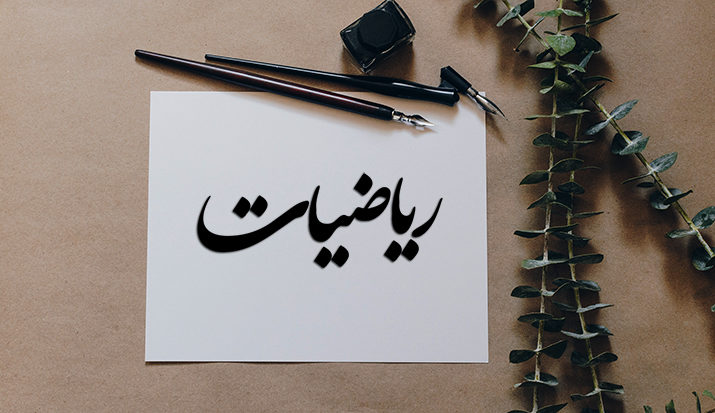 ریاضیات